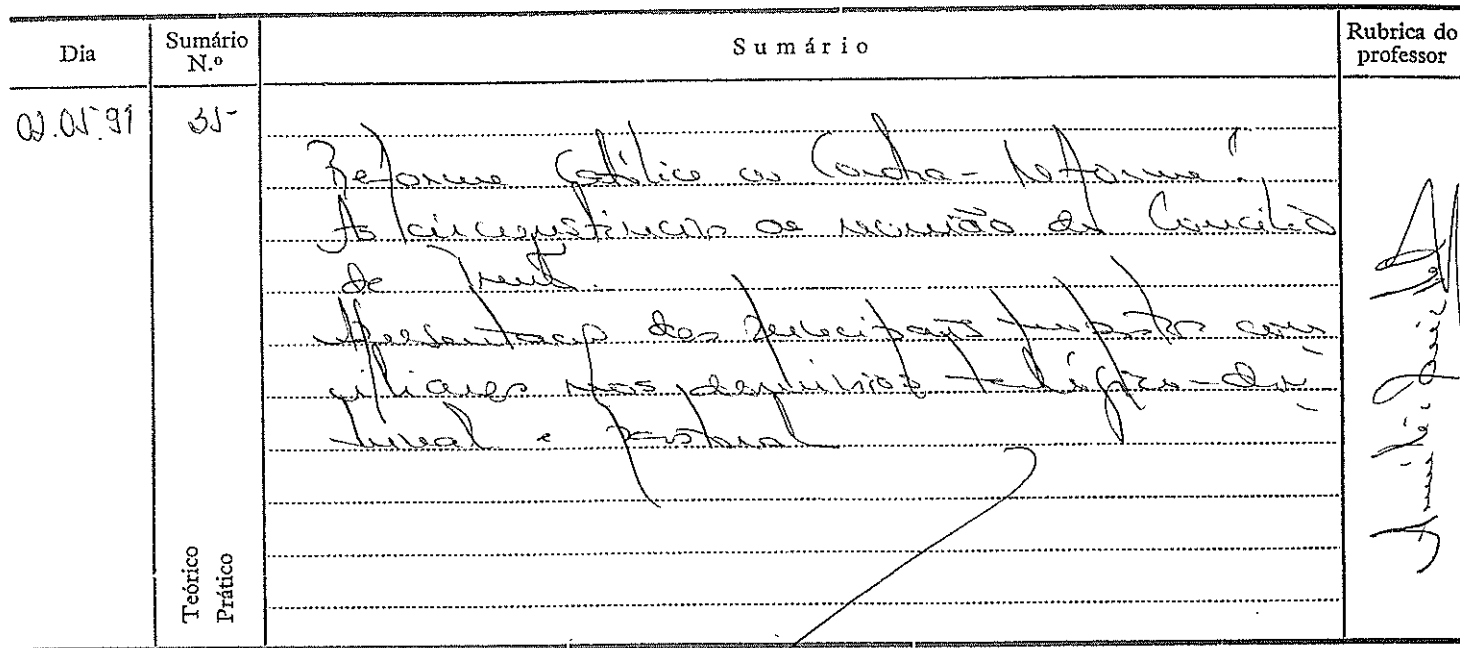 Dia
Sumário N.º
Sumário
Rubrica do professor
.05.91
35
Reforma Católica ou Contra-Reforma?
As circunstâncias da reunião do Concílio
de Trento.
Apresentação das principais con-
ciliares nos domínios teológico-dou-
trinal e pastoral
Teórico
Prático